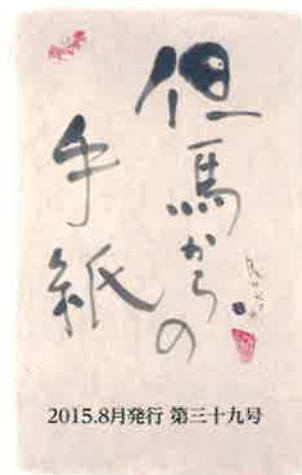 但馬からの
手紙
2015.8月発行 第三十九号